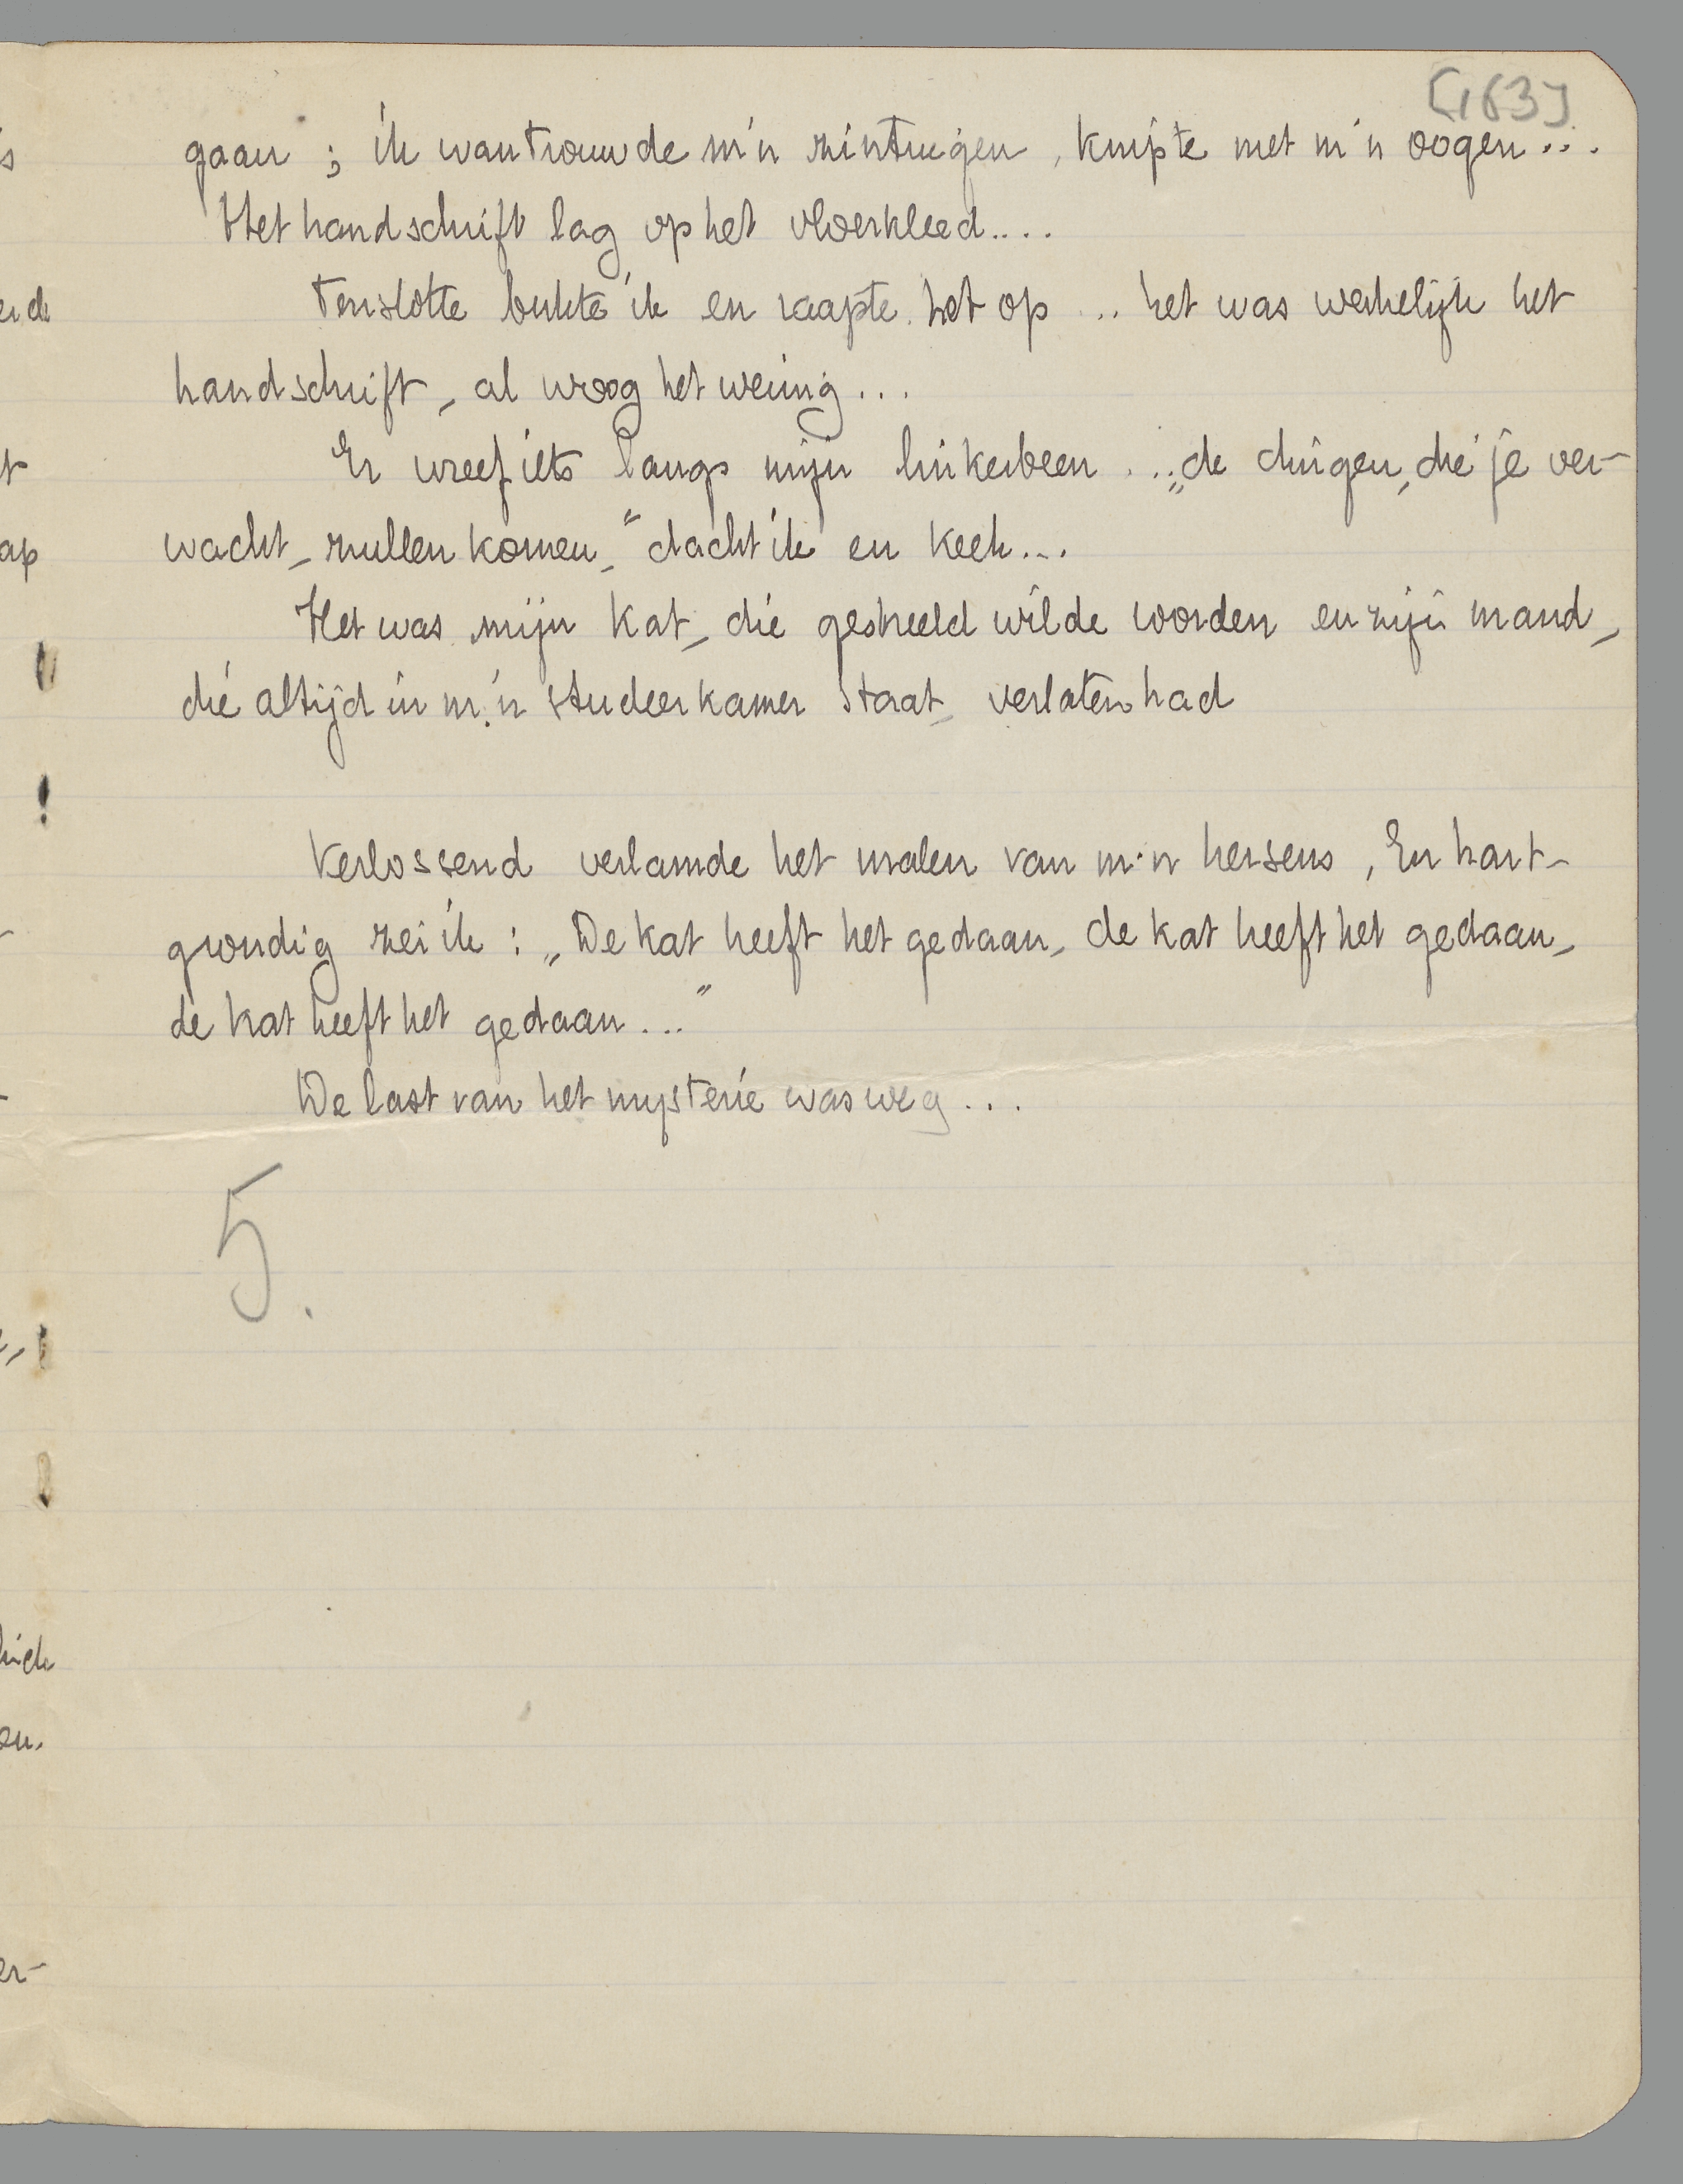 [163]
gaan ; ik wantrouwde m'n zintuigen, knipte met m'n oogen...
Het handschrift lag op het vloerkleed....
Tenslotte bukte ik en raapte het op ... het was werkelijk het
handschrift, al woog het weinig...
Er wreef iets langs mijn linkerbeen ... „de dingen, die je ver-
wacht, zullen komen," dacht ik en keek...
Het was mijn kat, die gestreeld wilde worden en zijn mand,
die altijd in m'n studeerkamer staat, verlaten had
Verlossend verlamde het malen van m'n hersens, En hart-
grondig zei ik : „De kat heeft het gedaan, de kat heeft het gedaan,
de kat heeft het gedaan..."
De last van het mysterie was weg...
5.